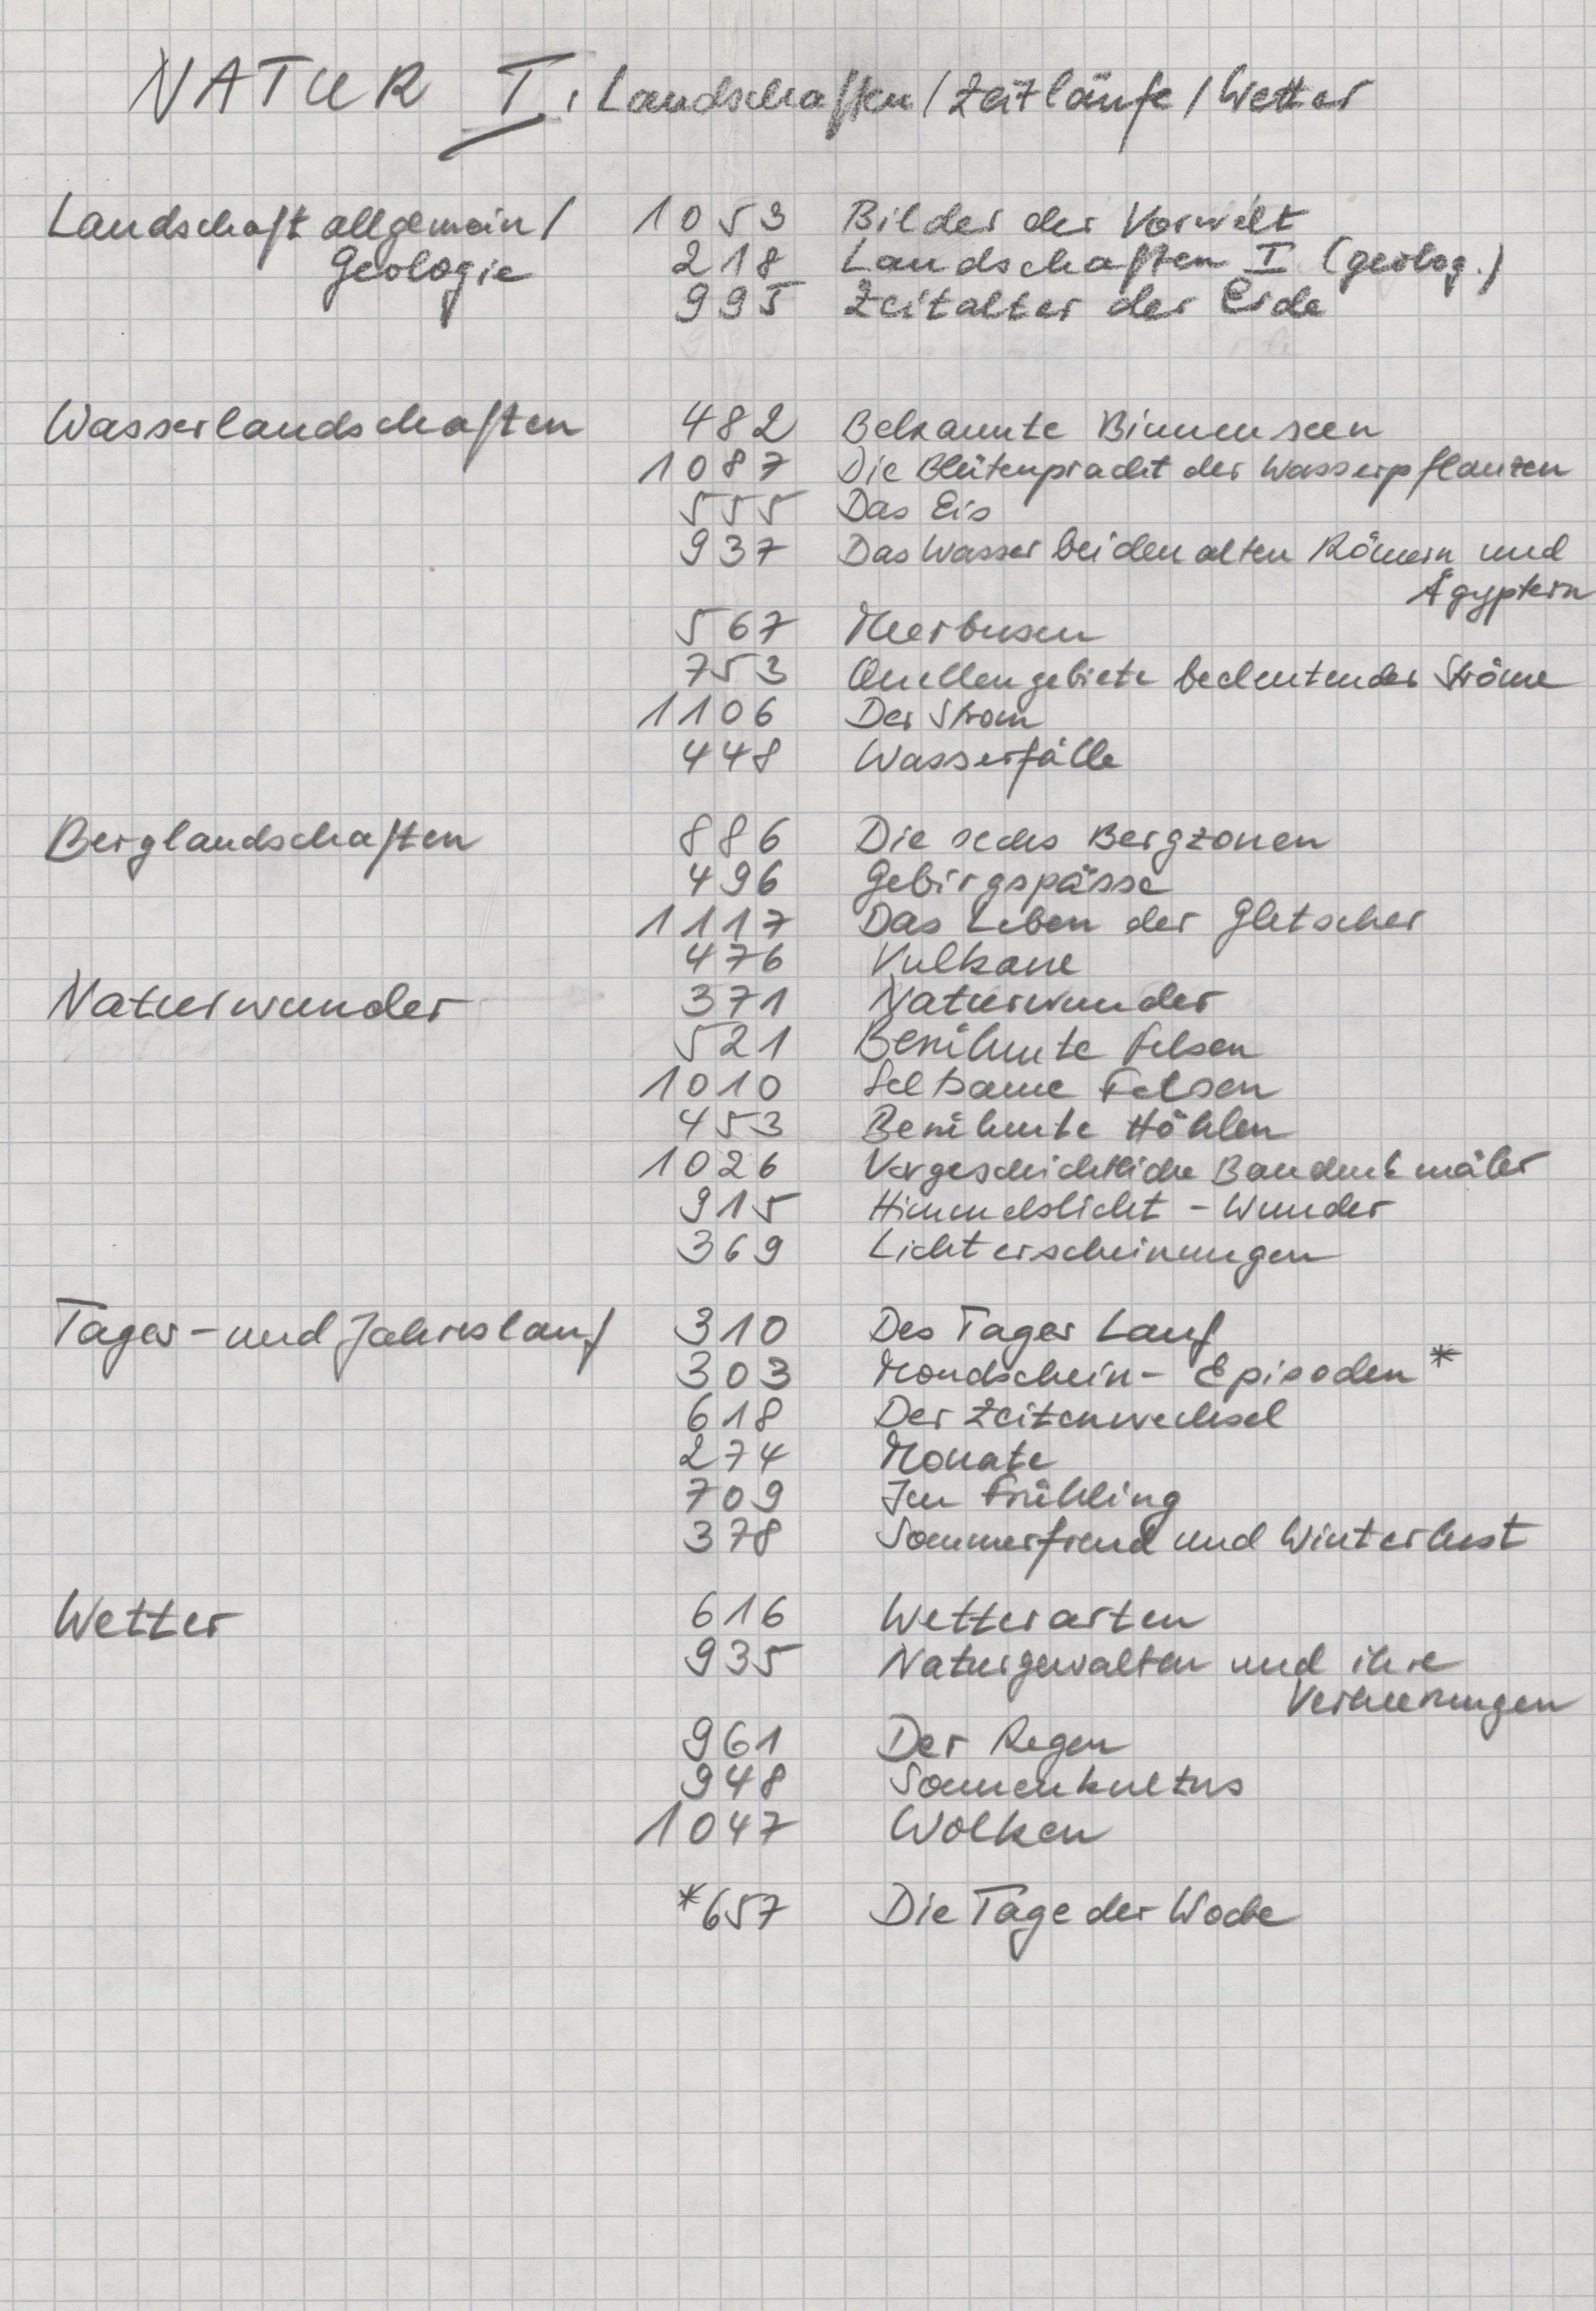 NATUR I, Landschaften / Zeitläufe / Wetter
Landschaft allgemein / 1053 Bilder der Vorwelt
Geologie 218 Landschaften I (geolog.)
995 Zeitalter der Erde
Wasserlandschaften 482 Bekannte Binnenseen
1087 Die Blütenpracht der Wasserpflanzen
555 Das Eis
937 Das Wasser bei den alten Römern und
Ägyptern
567 Meerbusen
753 Quellengebiete bedeutender Ströme
1106 Der Strom
448 Wasserfälle
Berglandschaften 886 Die sechs Bergzonen
496 Gebirgspässe
1117 Das Leben der Gletscher
476 Vulkane
Naturwunder 371 Naturwunder
521 Berühmte Felsen
1010 Seltsame Felsen
453 Berühmte Höhlen
1026 Vorgeschichtliche Baudenkmäler
915 Himmelslicht - Wunder
369 Lichterscheinungen
Tages- und Jahreslauf 310 Des Tages Lauf
303 Mondschein- Episoden *
618 Der Zeitenwechsel
274 Monate
709 Im Frühling
378 Sommerfreud und Winterlust
Wetter 616 Wetterarten
935 Naturgewalten und ihre
Verheerungen
961 Der Regen
948 Sonnenkultus
1047 Wolken
*657 Die Tage der Woche